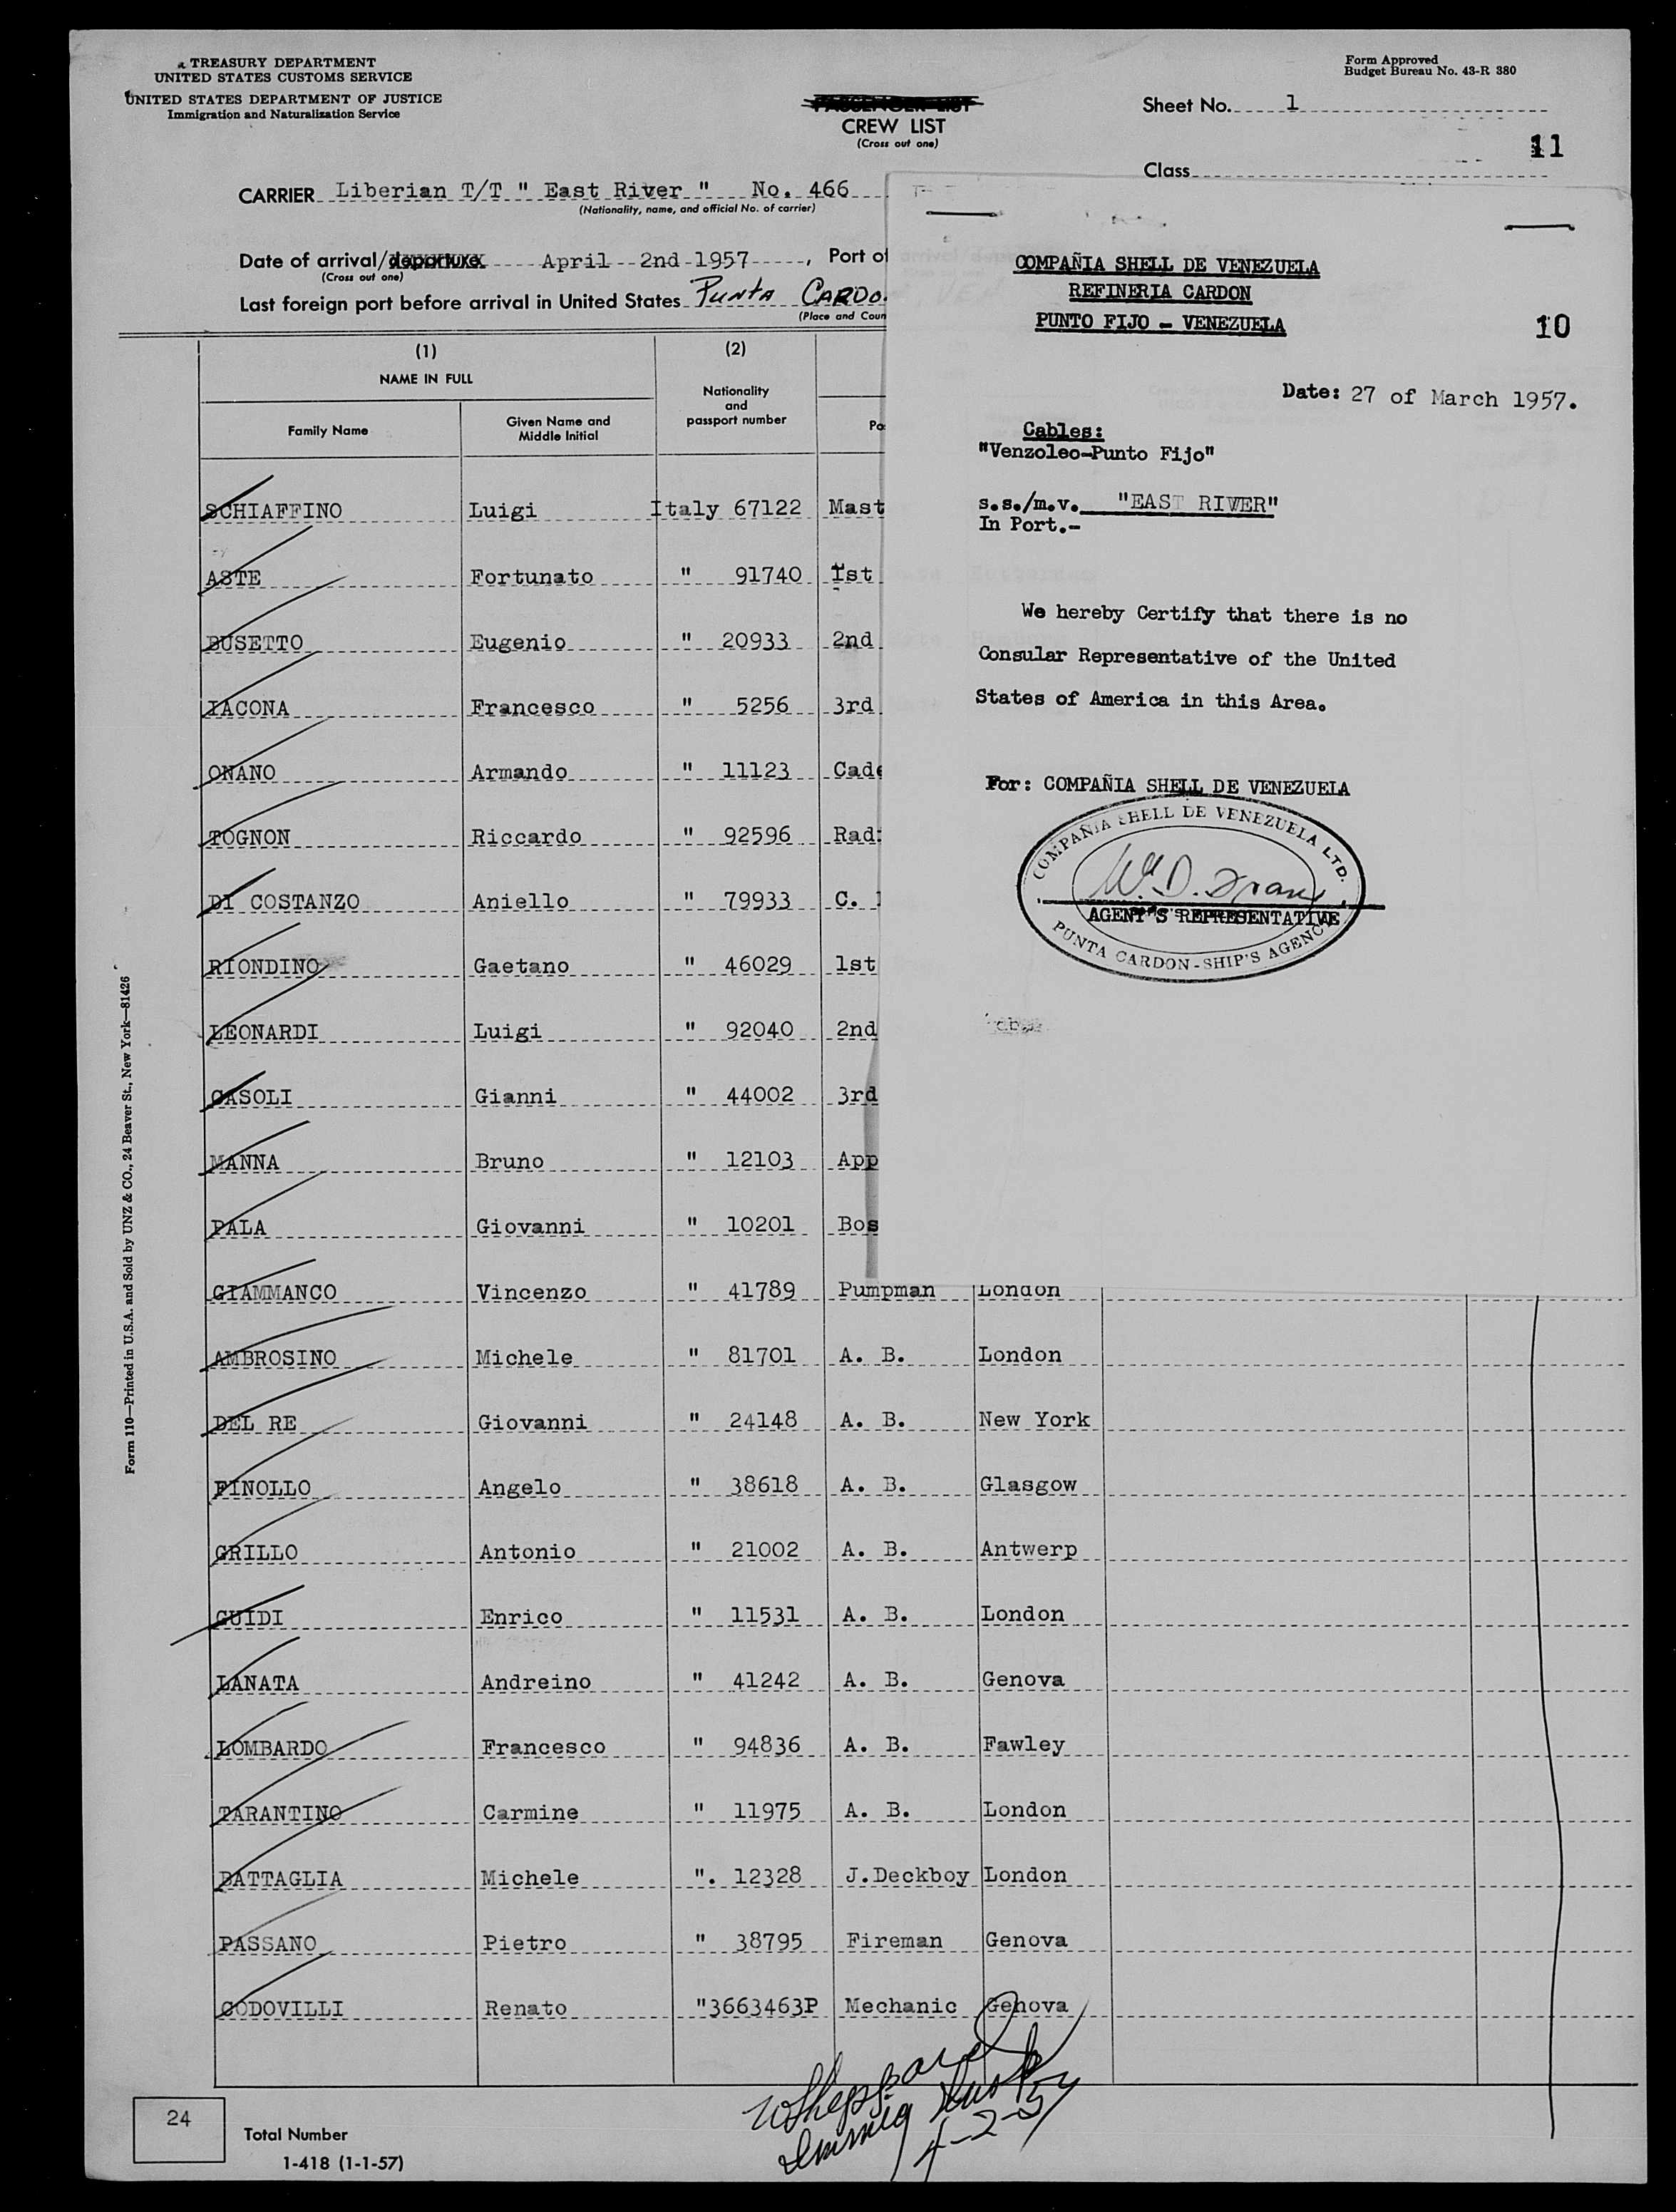 TREASURY DEPARTMENT
UNITED STATES CUSTOMS SERVICE
UNITED STATES DEPARTMENT OF JUSTICE
Immigration and Naturalization Service
PASSENGER LIST
CREW LIST
(Cross out one)
Form Approved
Budget Bureau No. 43-R 380
Sheet No. 1
11
Class
CARRIER Liberian T/T " East River " No. 466
(Nationality, name, and official No. of carrier)
Date of arrival/departure April 2nd 1957, Port of
(Cross out one)
Last foreign port before arrival in United States PUNTA CARDO
(Place and Coun
(1)
NAME IN FULL
Family Name
Given Name and Middle Initial
(2)
Nationality and passport number
Po
SCHIAFFINO Luigi Italy 67122 Mast
ASTE Fortunato " 91740 1st
BUSETTO Eugenio " 20933 2nd
IACONA Francesco " 5256 3rd
ONANO Armando " 11123 Cade
TOGNON Riccardo " 92596 Rad
DI COSTANZO Aniello " 79933 C.
RIONDINO Gaetano " 46029 1st
LEONARDI Luigi " 92040 2nd
CASOLI Gianni " 44002 3rd
MANNA Bruno " 12103 App
PALA Giovanni " 10201 Bos
GIAMMANCO Vincenzo " 41789 Pumpman London
AMBROSINO Michele " 81701 A. B. London
DEL RE Giovanni " 24148 A. B. New York
FINOLLO Angelo " 38618 A. B. Glasgow
GRILLO Antonio " 21002 A. B. Antwerp
GUIDI Enrico " 11531 A. B. London
LANATA Andreino " 41242 A. B. Genova
LOMBARDO Francesco " 94836 A. B. Fawley
TARANTINO Carmine " 11975 A. B. London
BATTAGLIA Michele ". 12328 J.Deckboy London
PASSANO Pietro " 38795 Fireman Genova
CODOVILLI Renato "3663463P Mechanic Genova
24
Total Number
1-418 (1-1-57)
WSheppard
Immig Insp
4-2-57
Form 110—Printed in U.S.A. and Sold by UNZ & CO., 24 Beaver St., New York—81426
COMPAÑIA SHELL DE VENEZUELA
REFINERIA CARDON
PUNTO FIJO - VENEZUELA
10
Date: 27 of March 1957.
Cables:
"Venzoleo-Punto Fijo"
s.s./m.v. "EAST RIVER"
In Port.-
We hereby Certify that there is no
Consular Representative of the United
States of America in this Area.
For: COMPAÑIA SHELL DE VENEZUELA
COMPAÑIA SHELL DE VENEZUELA LTD.
AGENT'S REPRESENTATIVE
PUNTA CARDON - SHIP'S AGENCY